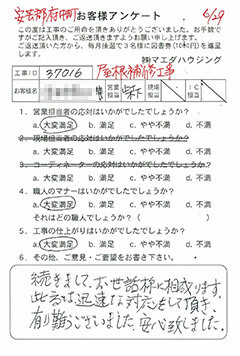 安芸郡府中町 お客様アンケート 6/29
この度は工事のご用命を頂きありがとうございました。お手数で
すがご記入頂き、ご返送頂きますようお願い申し上げます。
ご返送頂いた方から、毎月抽選で3名様に図書券(1000円)を進呈
します。
㈱マエダハウジング
工事ID 37016 屋根補修工事
お客様名 営業担当 現場担当 IC担当
1. 営業担当者の応対はいかがでしたでしょうか?
a. 大変満足 b. 満足 c. やや不満 d. 不満
2. 現場担当者の応対はいかがでしたでしょうか?
a. 大変満足 b. 満足 c. やや不満 d. 不満
3. コーディネーターの応対はいかがでしたでしょうか?
a. 大変満足 b. 満足 c. やや不満 d. 不満
4. 職人のマナーはいかがでしたでしょうか?
a. 大変満足 b. 満足 c. やや不満 d. 不満
それはどの職人でしょうか?( )
5. 工事の仕上がりはいかがでしたでしょうか?
a. 大変満足 b. 満足 c. やや不満 d. 不満
6. その他、ご意見・ご要望をお書き下さい。
続きまして、お世話様に相成ります。
此の度は、迅速な対応をして頂き、
有り難うございました。安心致しました。